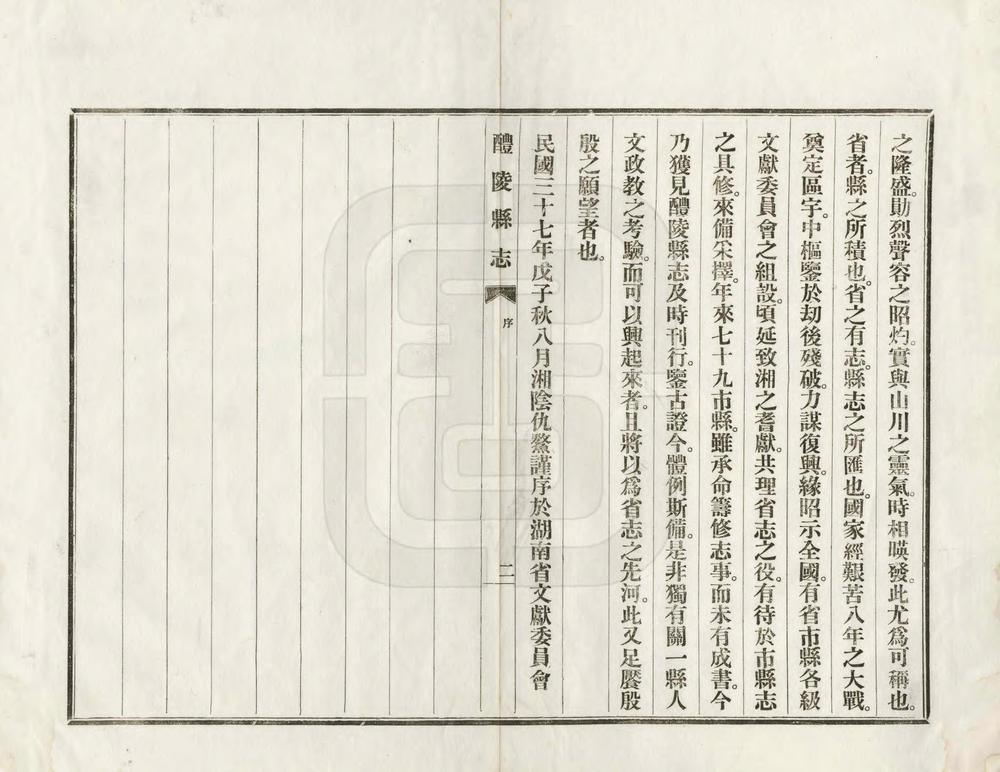 之隆盛。勛烈聲容之昭灼。實與山川之靈氣。時相暎發。此尤爲可稱也。
省者。縣之所積也。省之有志。縣志之所匯也。國家經艱苦八年之大戰。
奠定區宇。中樞鑒於劫後殘破。力謀復興。緣昭示全國。有省市縣各級
文獻委員會之組設。頃延致湘之耆獻。共理省志之役。有待於市縣志
之具修。來備采擇。年來七十九市縣。雖承命籌修志事。而未有成書。今
乃獲見醴陵縣志及時刊行。鑒古證今。體例斯備。是非獨有關一縣人
文政教之考驗。而可以興起來者。且將以爲省志之先河。此又足饜殷
殷之願望者也。
民國三十七年戊子秋八月湘陰仇鰲謹序於湖南省文獻委員會
醴陵縣志 序 二